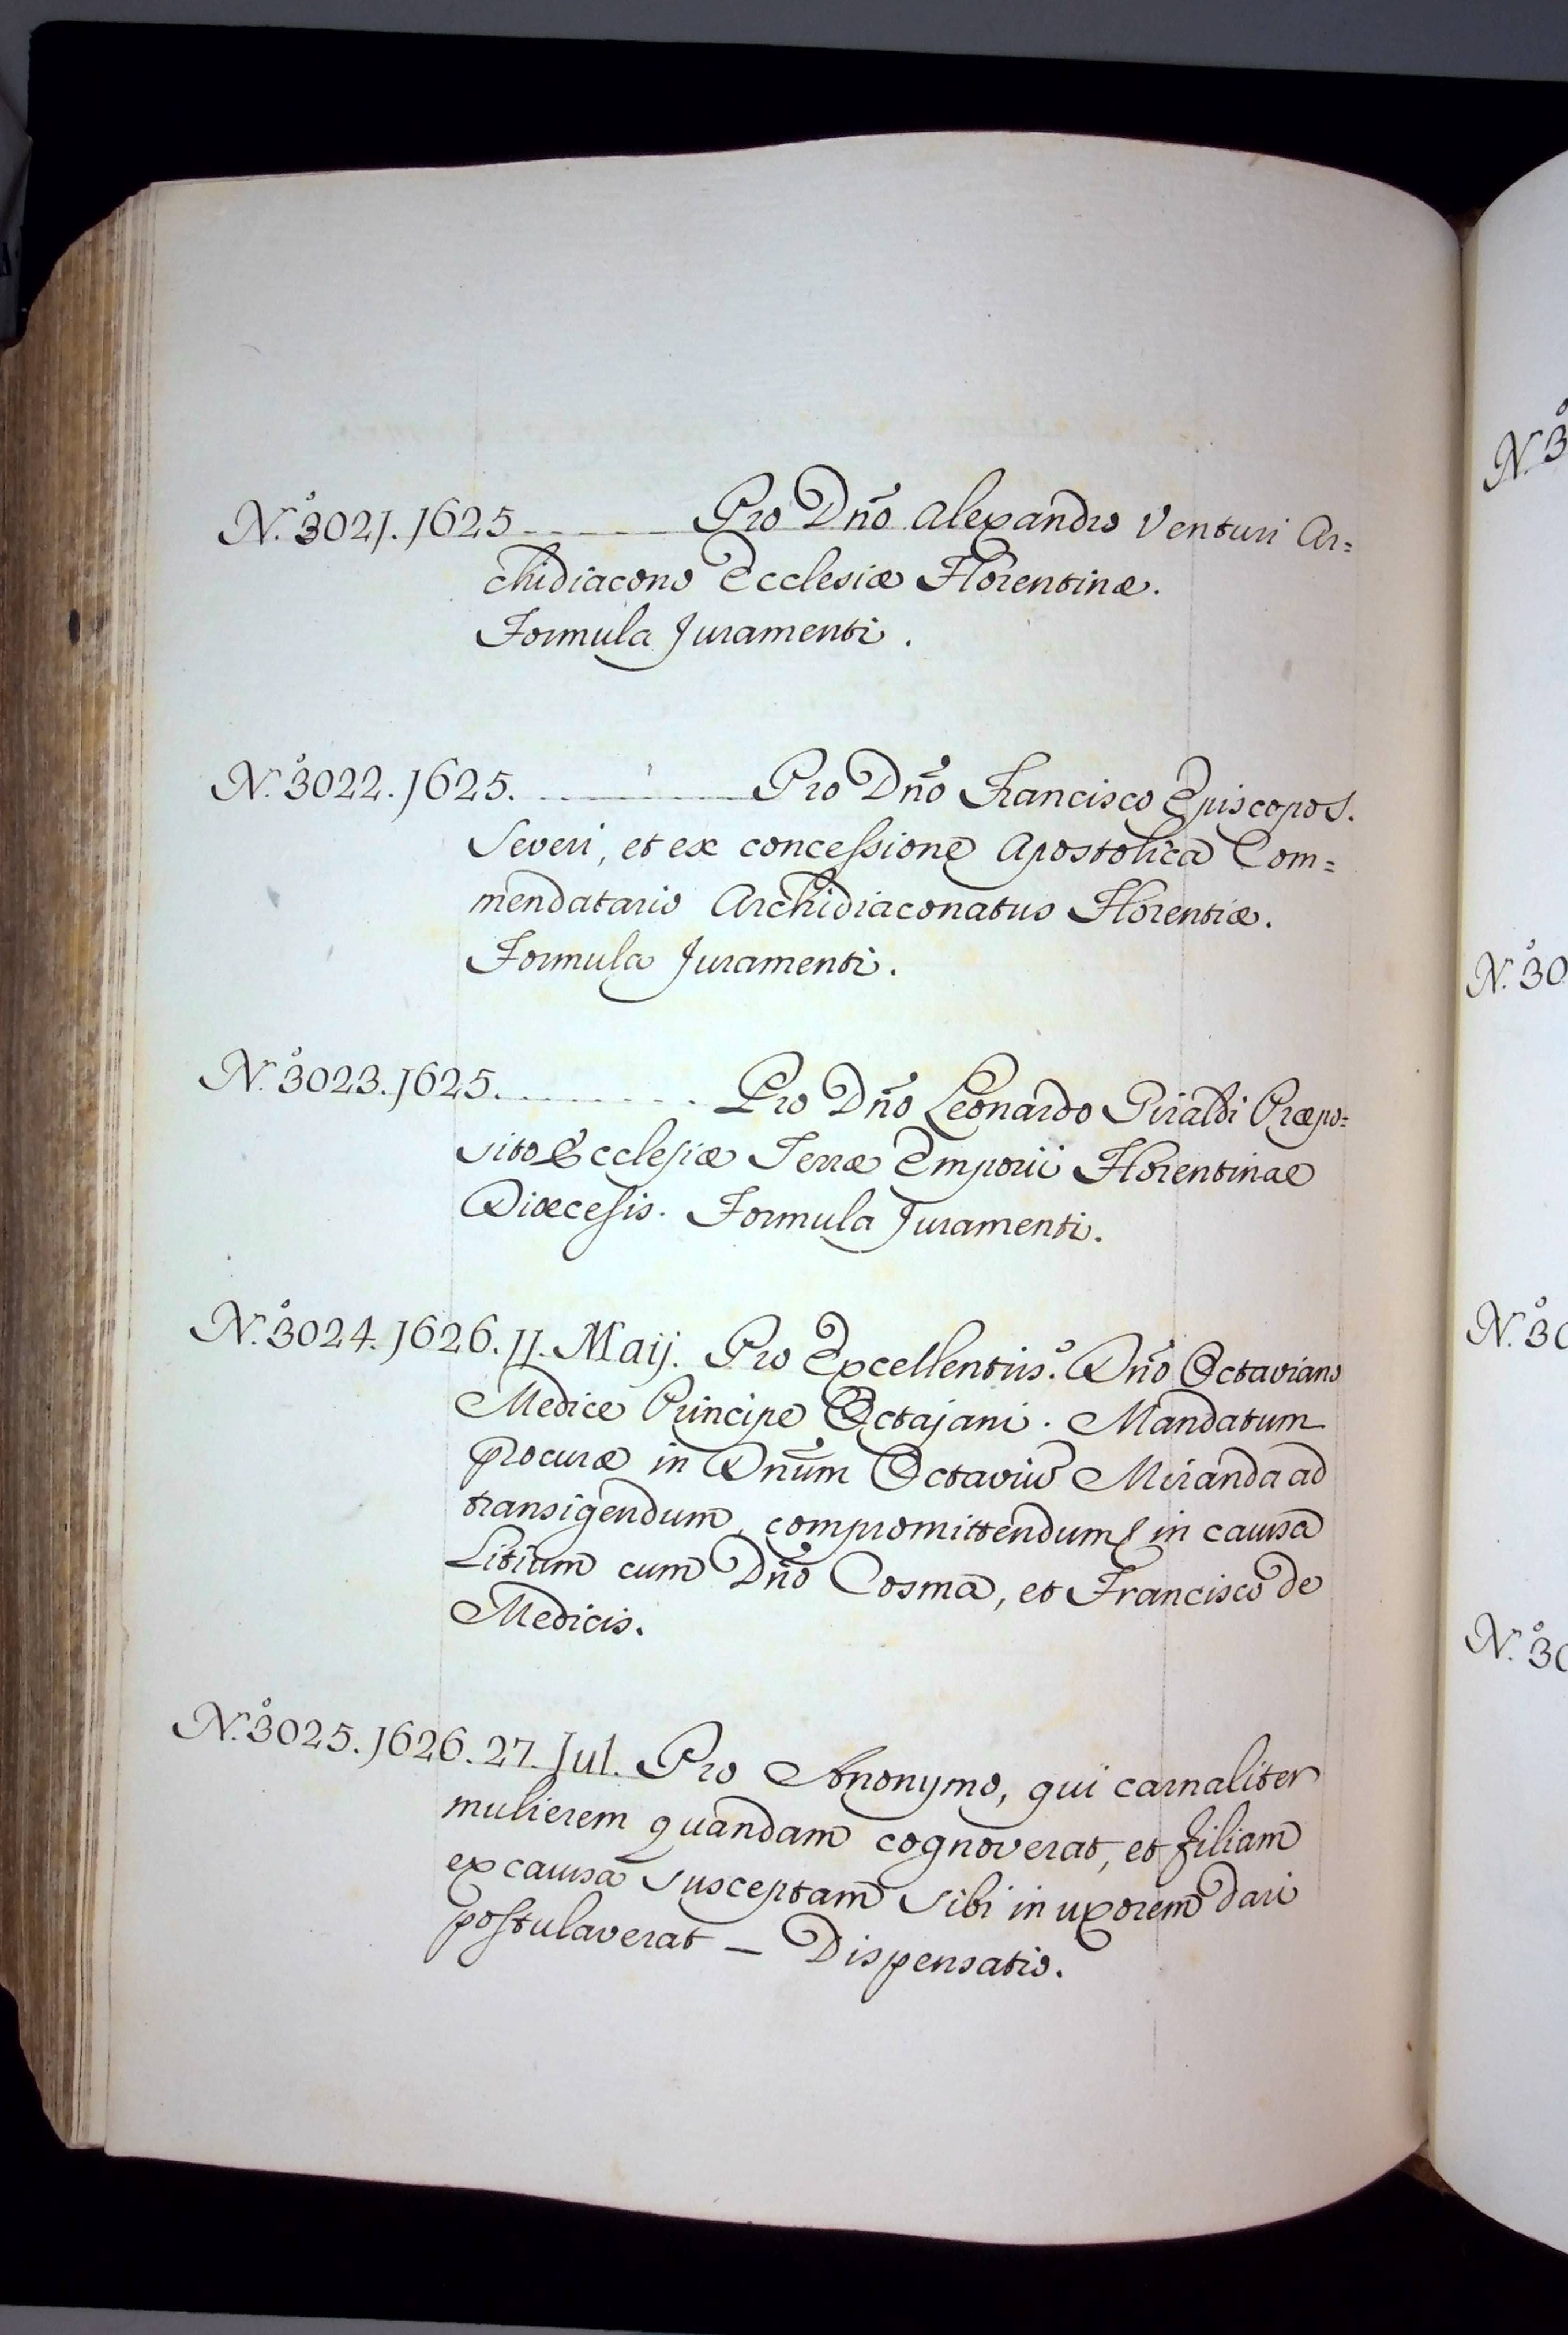 N.º 3021. 1625 - - - - - - Pro Dño Alexandro Venturi Ar=
chidiacono Ecclesiæ Florentinæ.
Formula Juramenti.
N.º 3022. 1625. - - - - - - Pro Dño Francisco Episcopo S.
Severi, et ex concessione Apostolica Com=
mendatario Archidiaconatus Florentiæ.
Formula Juramenti.
N.º 3023. 1625. - - - - - - Pro Dño Leonardo Giraldi Præpo=
sito Ecclesiæ Terræ Emporii Florentinae
Diœcesis. Formula Juramenti.
N.º 3024. 1626. 11. Maij. Pro Excellentiis.º Dño Octaviano
Medice Principe Octajani. Mandatum
procuræ in Dnũm Octaviũ Miranda ad
transigendum, compromittendum in causa
Litium cum Dño Cosma, et Francisco de
Medicis.
N.º 3025. 1626. 27. Jul. Pro Anonymo, qui carnaliter
mulierem quandam cognoverat, et filiam
ex causa susceptam sibi in uxorem dari
postulaverat — Dispensatio.
N.º 3
N.º 30
N.º 30
N.º 30